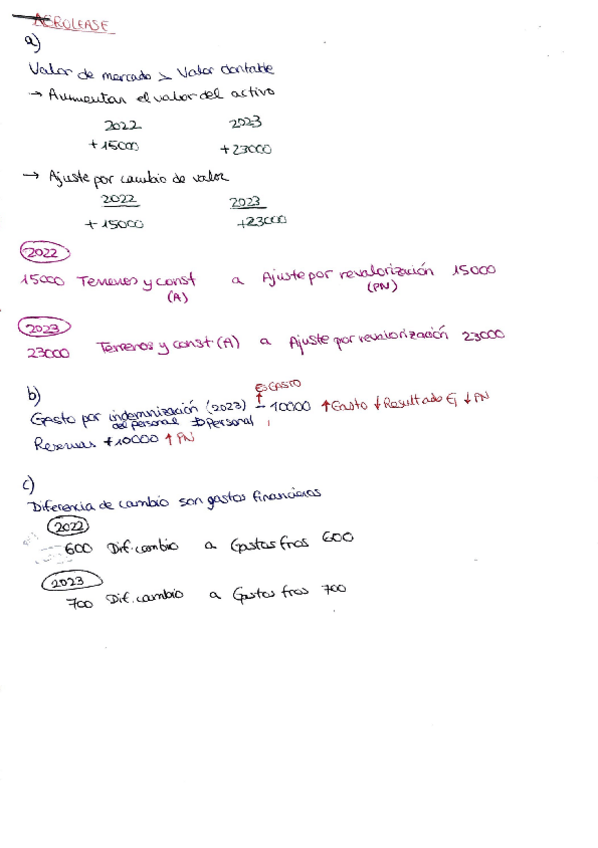 AEROLEASE
a)
Valor de mercado > Valor contable
→ Aumentar el valor del activo
2022 2023
+15000 +23000
→ Ajuste por cambio de valor
2022 2023
+15000 +23000
2022
15000 Terrenos y const (A) a Ajuste por revalorización (PN) 15000
2023
23000 Terrenos y const (A) a Ajuste por revalorización 23000
b)
es GASTO
Gasto por indemnización (2023) - 10000 ↑Gasto ↓Resultado Ej ↓PN
del personal ⇒ Personal
Reservas +10000 ↑PN
c)
Diferencia de cambio son gastos financieros
2022
600 Dif. cambio a Gastos fros 600
2023
700 Dif. cambio a Gastos fros 700